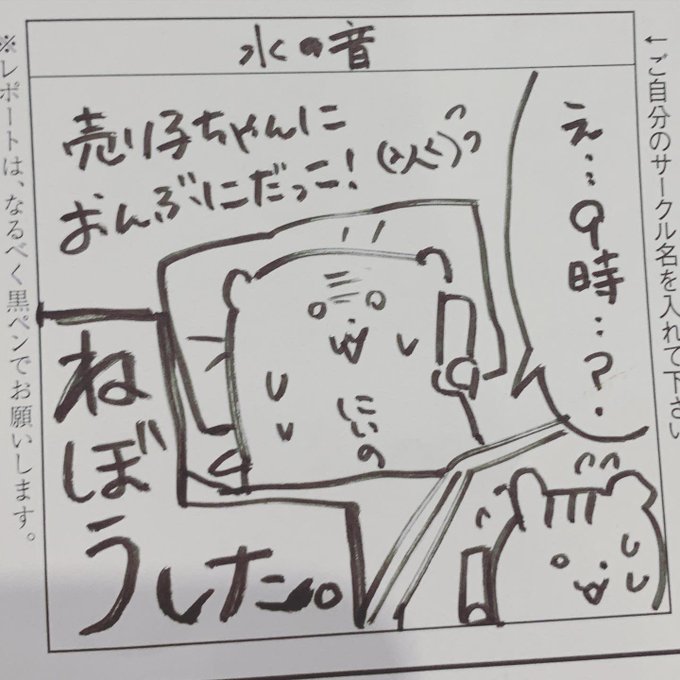 ← ご自分のサークル名を入れて下さい
水の音
え…9時…?
売り子ちゃんに
おんぶにだっこ!
にいの
ねぼ
うした。
※レポートは、なるべく黒ペンでお願いします。